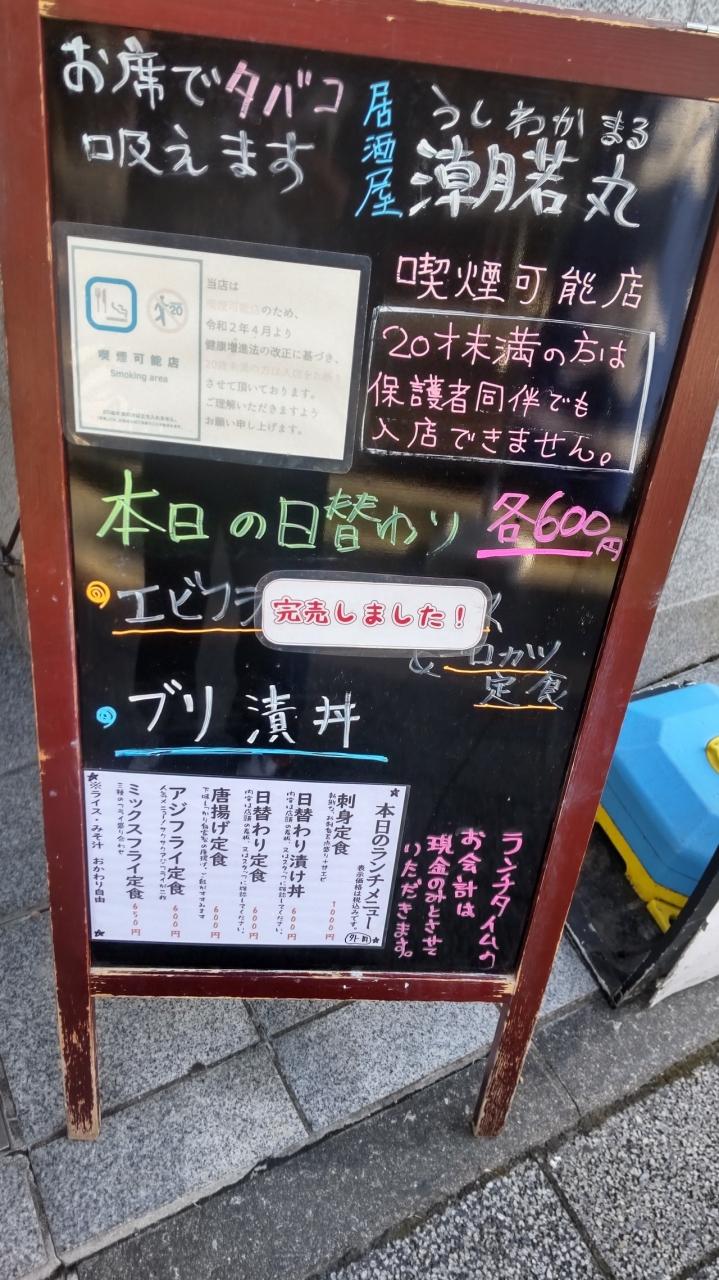 お席でタバコ
吸えます
居酒屋
うしわかまる
潮若丸
喫煙可能店
Smoking area
20
当店は
喫煙可能店のため、
令和2年4月より
健康増進法の改正に基づき、
させて頂いております。
ご理解いただきますよう
お願い申し上げます。
喫煙可能店
20才未満の方は
保護者同伴でも
入店できません。
本日の日替わり 各600円
エビフラ
完売しました!
ロカツ
定食
ブリ漬丼
本日のランチメニュー
表示価格は税込みです。
刺身定食 1000円
日替わり漬け丼 600円
内容は店頭の看板、又はスタッフに確認してください。
日替わり定食 600円
内容は店頭の看板、又はスタッフに確認してください。
唐揚げ定食 600円
アジフライ定食 600円
ミックスフライ定食 650円
三種のフライ盛り合わせ
※ライス・みそ汁 おかわり自由
ランチタイムの
お会計は
現金のみとさせて
いただきます。